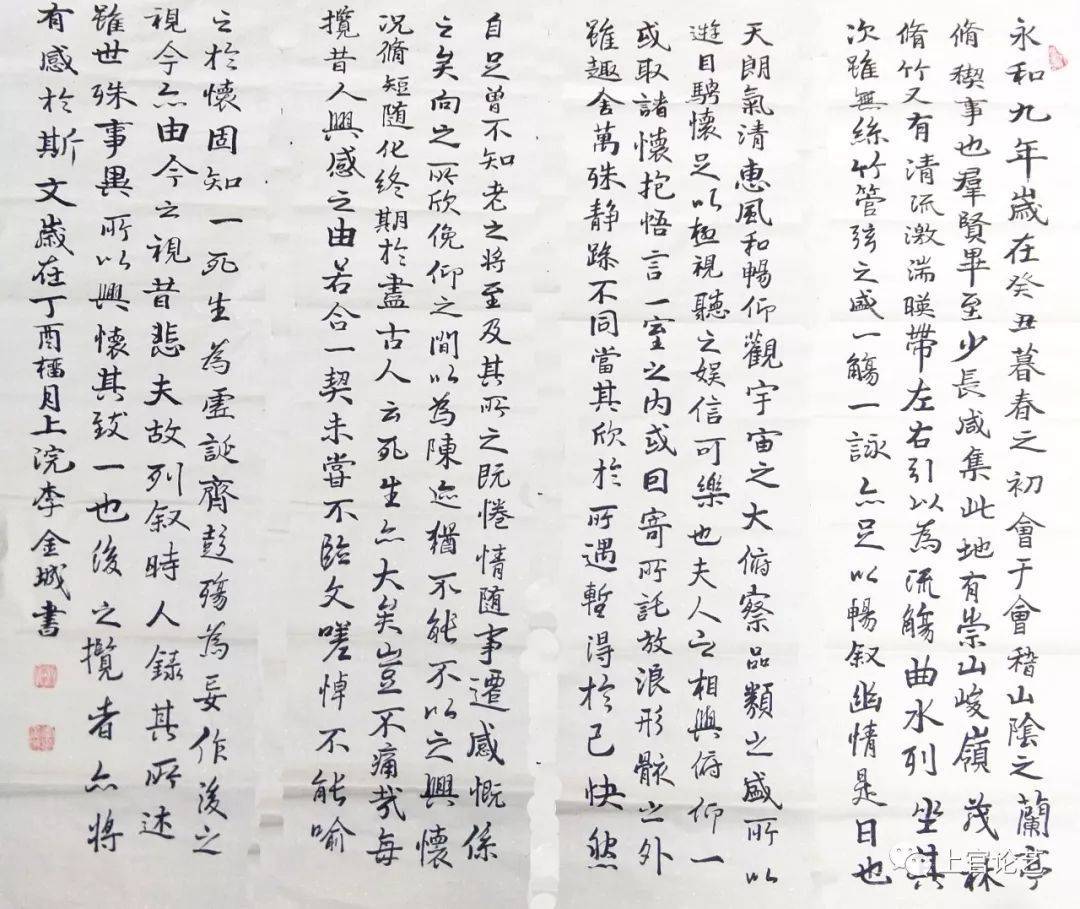 永和九年歲在癸丑暮春之初會于會稽山陰之蘭亭
脩稧事也羣賢畢至少長咸集此地有崇山峻嶺茂林
脩竹又有清流激湍暎帶左右引以為流觴曲水列坐其
次雖無絲竹管弦之盛一觴一詠亦足以暢叙幽情是日也
天朗氣清惠風和暢仰觀宇宙之大俯察品類之盛所以
遊目騁懷足以極視聽之娛信可樂也夫人之相與俯仰一
或取諸懷抱悟言一室之內或因寄所託放浪形骸之外
雖趣舍萬殊静躁不同當其欣於所遇暫得於己快然
自足曾不知老之將至及其所之既惓情随事遷感慨係
之矣向之所欣俛仰之間以為陳迹猶不能不以之興懷
況脩短随化終期於盡古人云死生亦大矣豈不痛哉每
攬昔人興感之由若合一契未嘗不臨文嗟悼不能喻
之於懷固知一死生為虛誕齊彭殤為妄作後之
視今亦由今之視昔悲夫故列叙時人錄其所述
雖世殊事異所以興懷其致一也後之攬者亦將
有感於斯文歲在丁酉榴月上浣李金城書
上官论艺